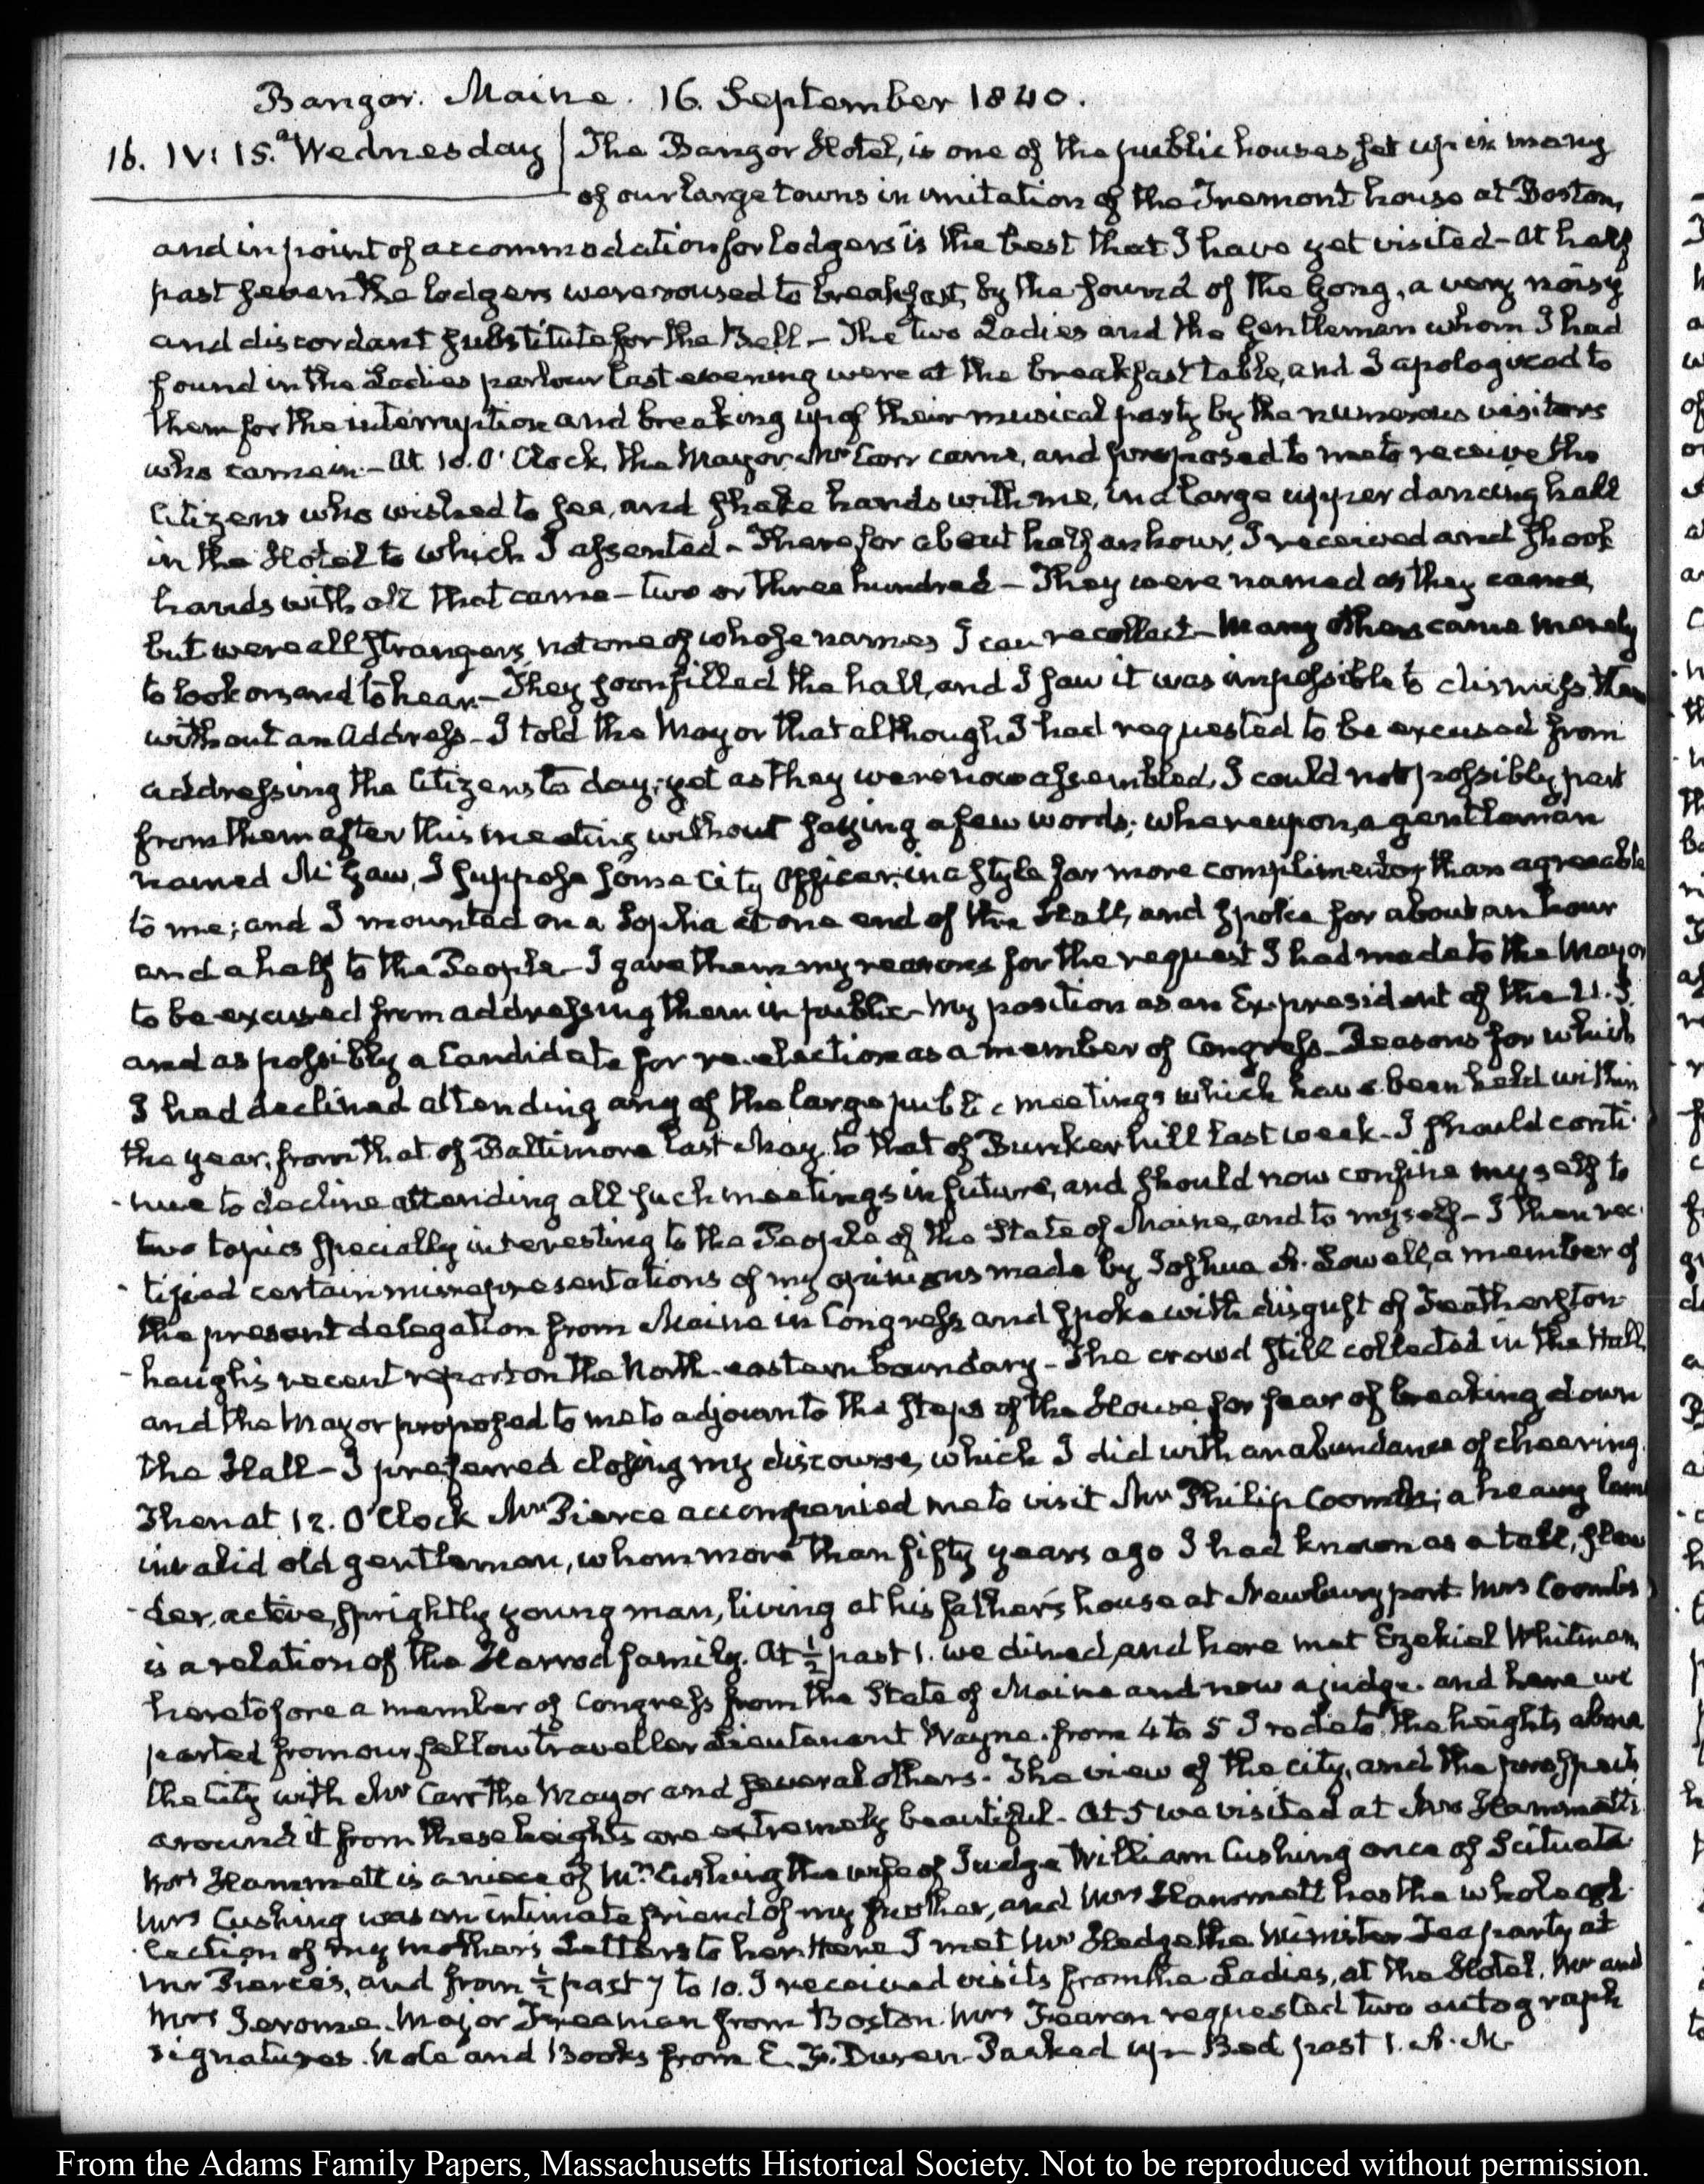 Bangor. Maine. 16. September 1840.
16. IV: 15.a Wednesday The Bangor Hotel, is one of the public houses set up in many
of our large towns in imitation of the Tremont house at Boston,
and in point of accommodation for lodgers is the best that I have yet visited – At half
past seven the lodgers were roused to breakfast, by the sound of the Gong, a very noisy
and discordant substitute for the Bell – The two Ladies and the Gentleman whom I had
found in the Ladies parlour last evening were at the breakfast table, and I apologized to
them for the interruption and breaking up of their musical party by the numerous visitors
who came in – At 10. O'Clock, the Mayor Mr Carr came, and proposed to me to receive the
Citizens who wished to see, and shake hands with me, in a large upper dancing hall
in the Hotel to which I assented – There for about half an hour, I received and shook
hands with all that came – two or three hundred – They were named as they came,
but were all strangers, not one of whose names I can recollect – Many others came merely
to look on and to hear – They soon filled the hall, and I saw it was impossible to dismiss them
without an Address – I told the Mayor that although I had requested to be excused from
addressing the Citizens to day; yet as they were now assembled, I could not possibly part
from them after this meeting without saying a few words; whereupon, a gentleman
named McGaw, I suppose some City Officer, in a style far more complimentary than agreeable
to me; and I mounted on a Sopha at one end of the Hall, and spoke for about an hour
and a half to the People – I gave them my reasons for the request I had made to the Mayor
to be excused from addressing them in public – My position as an Ex-president of the U.S.
and as possibly a Candidate for re-election as a member of Congress – Reasons for which
I had declined attending any of the large public meetings which have been held within
the year, from that of Baltimore last May, to that of Bunker hill last week – I should conti-
-nue to decline attending all such meetings in future, and should now confine myself to
two topics specially interesting to the People of the State of Maine, and to myself – I then rec-
-tified certain misrepresentations of my opinions made by Joshua A. Lowell, a member of
the present delegation from Maine in Congress and spoke with disgust of Featherston-
-haugh's recent report on the North-eastern boundary – The crowd still collected in the Hall,
and the Mayor proposed to me to adjourn to the steps of the House for fear of breaking down
the Hall – I preferred closing my discourse, which I did with an abundance of cheering.
Then at 12. O'Clock Mr Pierce accompanied me to visit Mr Philip Coombs; a heavy lame
invalid old gentleman, whom more than fifty years ago I had known as a tall, slen
-der, active, sprightly young man, living at his father's house at Newburyport Mrs Coombs
is a relation of the Harrod family. At ½ past 1. we dined, and here met Ezekiel Whitman,
heretofore a member of Congress from the State of Maine and now a judge. and here we
parted from our fellow traveller Lieutenant Wayne. from 4 to 5 I rode to the heights above
the City with Mr Carr the Mayor and several others. The view of the city, and the prospects
around it from these heights are extremely beautiful – At 5 we visited at Mrs Hammatt's.
Mrs Hammatt is a niece of Mrs Cushing the wife of Judge William Cushing once of Scituate
Mrs Cushing was an intimate friend of my Mother, and Mrs Hammatt has the whole col-
-lection of my Mother's Letters to her. Here I met Mr Hedge the Minister Tea party at
Mr Pierce's, and from ½ past 7 to 10. I received visits from the Ladies, at the Hotel. Mr and
Mrs Jerome. Major Freeman from Boston. Mrs Fearon requested two autograph
signatures. Note and Books from E. F. Duren. Packed up – Bed past 1. A.M.
From the Adams Family Papers, Massachusetts Historical Society. Not to be reproduced without permission.